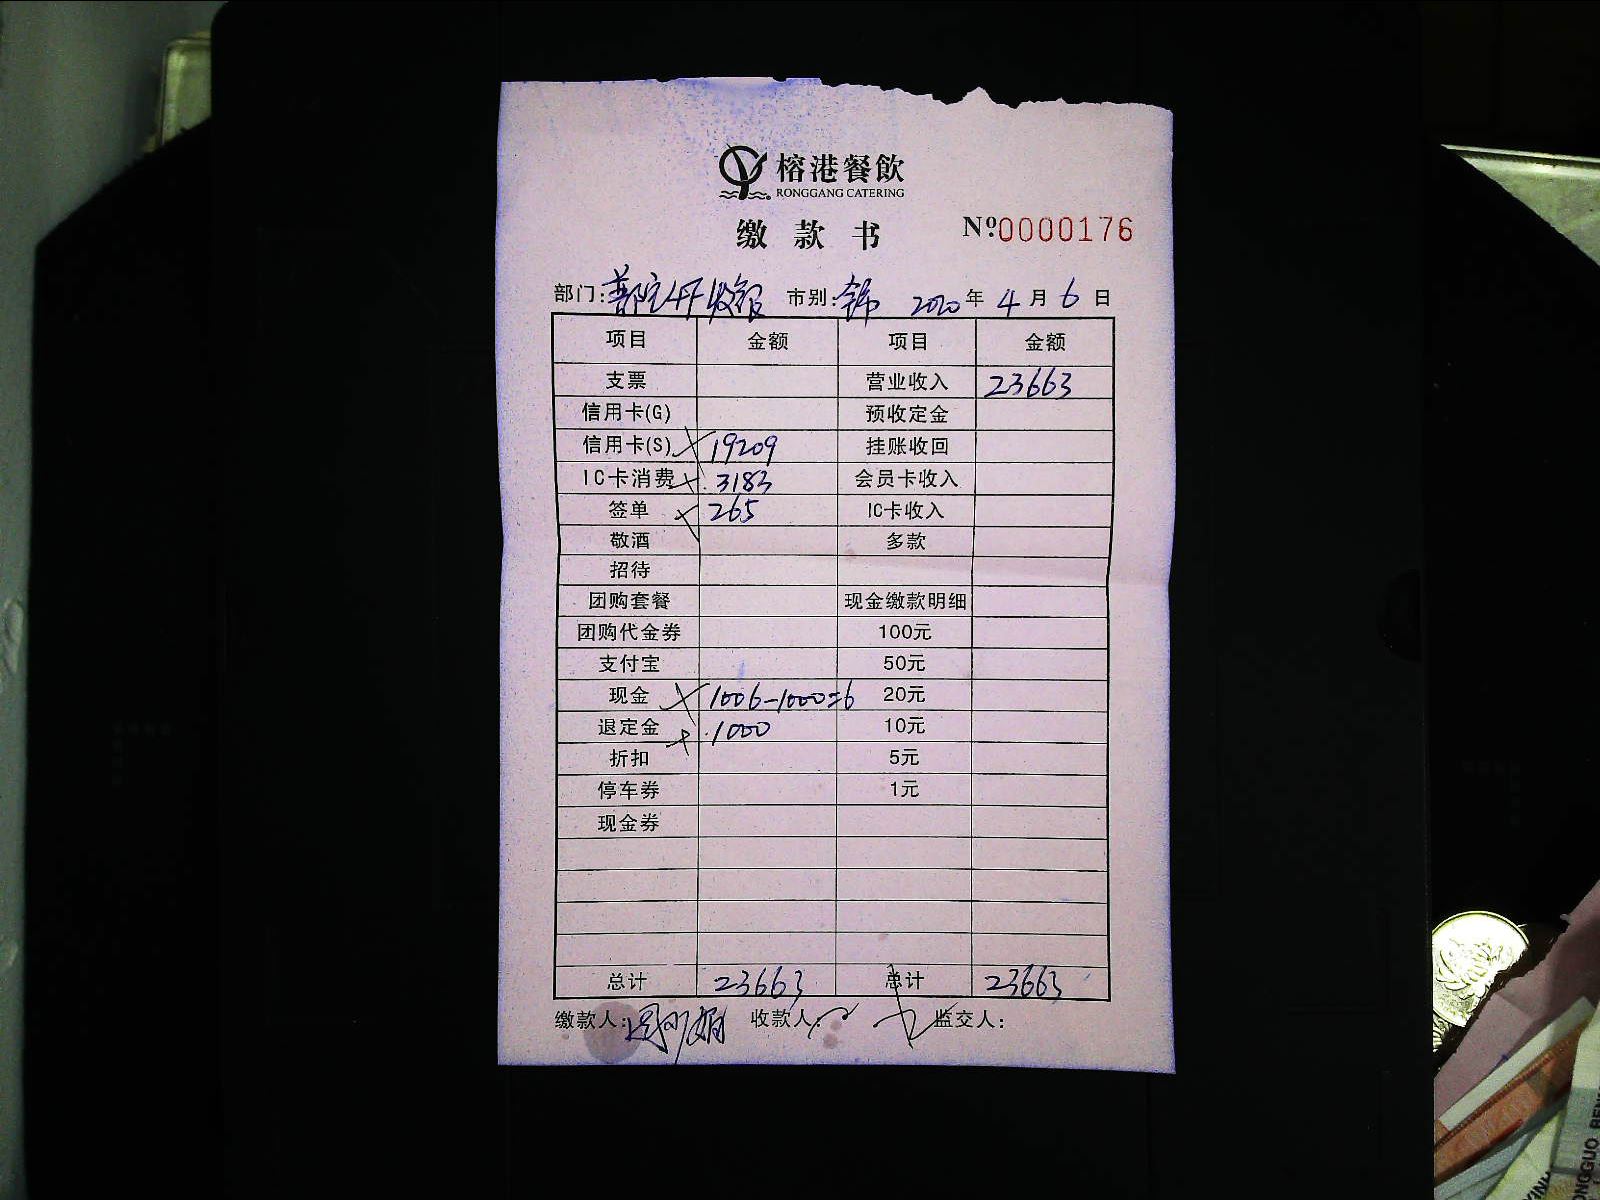 榕港餐飲
RONGGANG CATERING
缴款书 Nº0000176
部门: 普陀4F收银 市别: 2020年4月6日
项目 金额 项目 金额
支票 营业收入 23663
信用卡(G) 预收定金
信用卡(S) 19209 挂账收回
IC卡消费 3183 会员卡收入
签单 265 IC卡收入
敬酒 多款
招待
团购套餐 现金缴款明细
团购代金券 100元
支付宝 50元
现金 1006-1000=6 20元
退定金 1000 10元
折扣 5元
停车券 1元
现金券
总计 23663 总计 23663
缴款人: 收款人: 监交人: